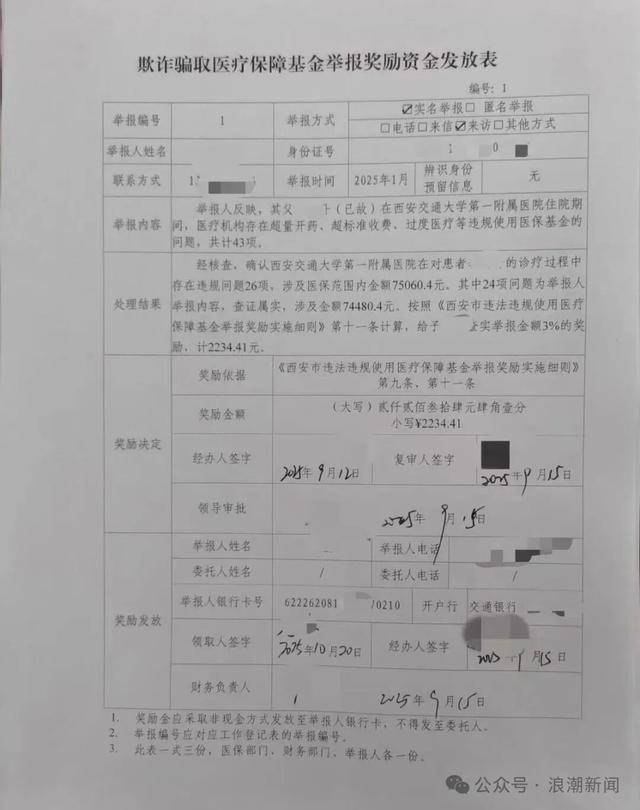 欺诈骗取医疗保障基金举报奖励资金发放表
编号：1
举报编号 1 举报方式 ☑实名举报□ 匿名举报
□电话□来信☑来访□其他方式
举报人姓名 身份证号 1 0
联系方式 1 举报时间 2025年1月 辨识身份预留信息 无
举报内容
举报人反映，其父 （已故）在西安交通大学第一附属医院住院期
间，医疗机构存在超量开药、超标准收费、过度医疗等违规使用医保基金的
问题，共计43项。
处理结果
经核查，确认西安交通大学第一附属医院在对患者 的诊疗过程中
存在违规问题26项，涉及医保范围内金额75060.4元。其中24项问题为举报人
举报内容，查证属实，涉及金额74480.4元。按照《西安市违法违规使用医疗
保障基金举报奖励实施细则》第十一条计算，给予 实举报金额3%的奖
励，计2234.41元。
奖励决定
奖励依据 《西安市违法违规使用医疗保障基金举报奖励实施细则》
第九条、第十一条
奖励金额 （大写）贰仟贰佰叁拾肆元肆角壹分
小写¥2234.41
经办人签字 2025年9月12日 复审人签字 2025年9月15日
领导审批 2025年9月15日
奖励发放
举报人姓名 举报人电话
委托人姓名 / 委托人电话 /
举报人银行卡号 622262081 /0210 开户行 交通银行
领取人签字 2025年10月20日 经办人签字 2025年9月15日
财务负责人 2025年9月15日
1. 奖励金应采取非现金方式发放至举报人银行卡，不得发至委托人。
2. 举报编号应对应工作登记表的举报编号。
3. 此表一式三份，医保部门、财务部门、举报人各一份。
公众号·浪潮新闻